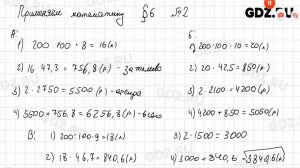 Применяем математику §6 №2
GDZ.RU
А:
1) 200 : 100 · 8 = 16(л)
2) 16 · 47,3 = 756,8(р) - за топливо
3) 2 · 2750 = 5500(р) - аренда
4) 5500 + 756,8 = 6256,8(р) - всего
Б:
1) 200 : 100 · 10 = 20(л)
2) 20 · 42,5 = 850(р)
3) 2 · 2100 = 4200(р)
4) 4200 + 850 = 5050(р)
В: 1) 200 : 100 · 9 = 18(л)
2) 18 · 46,7 = 840,6(р)
3) 2 · 1500 = 3000
4) 3000 + 840,6 = 3840,6(р)
GDZ.RU